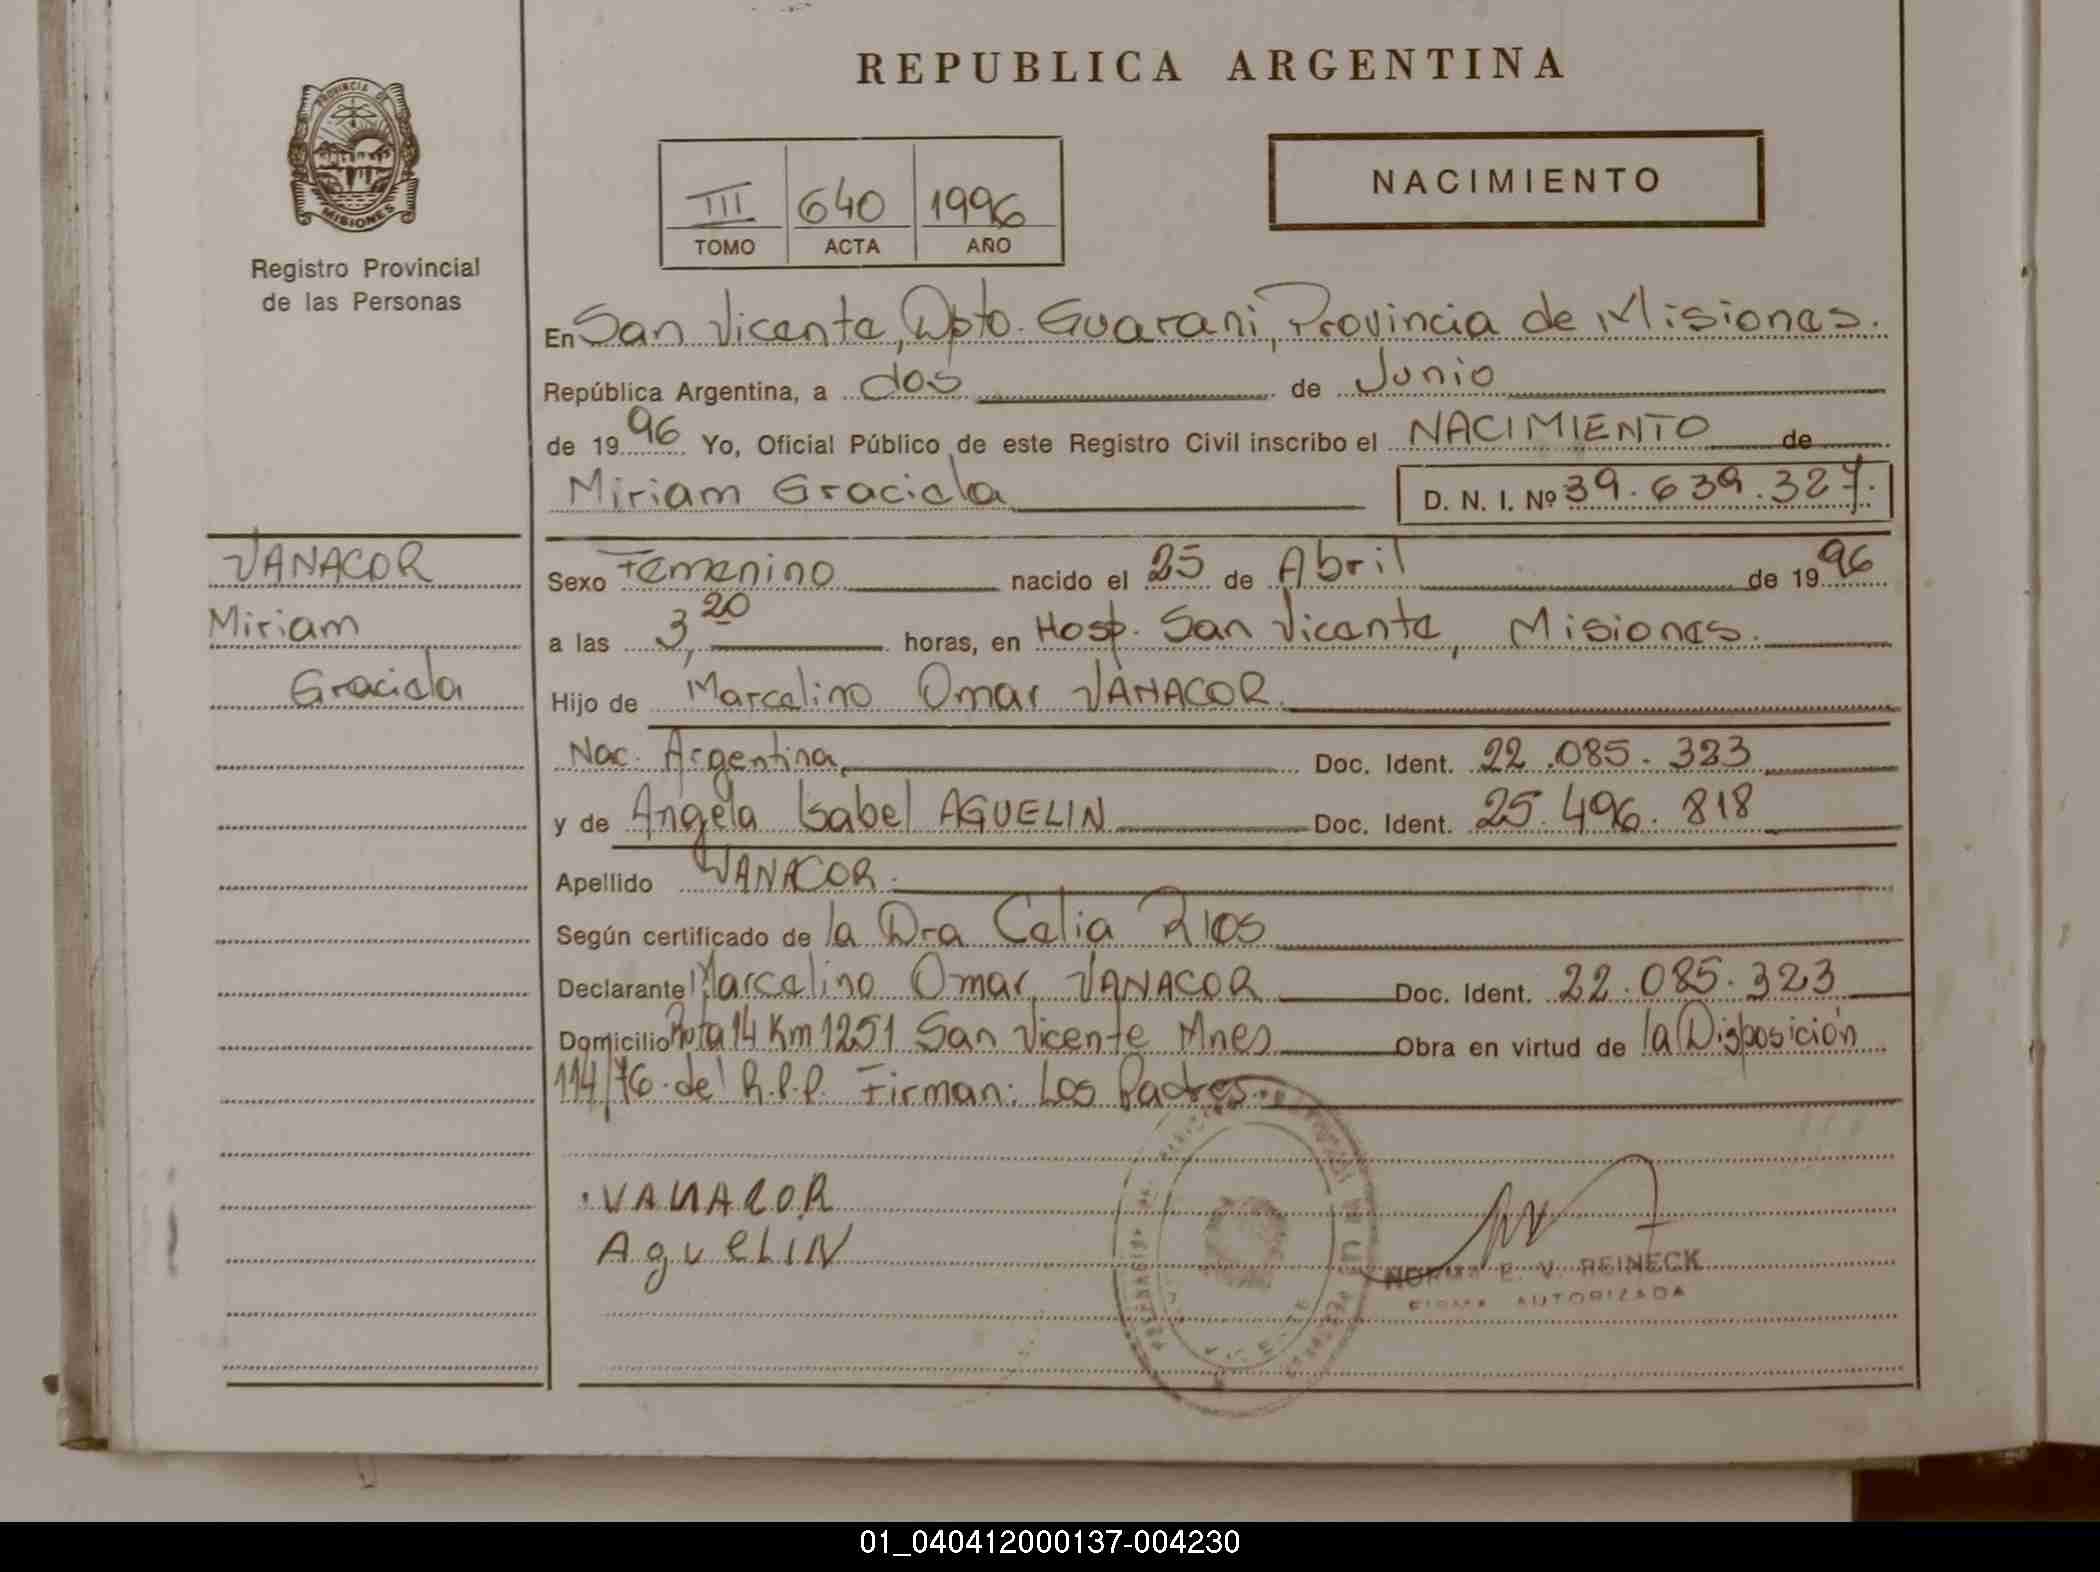 REPUBLICA ARGENTINA
PROVINCIA DE
MISIONES
Registro Provincial
de las Personas
III 640 1996
TOMO ACTA AÑO
NACIMIENTO
En San Vicente, Dpto. Guarani, Provincia de Misiones.
República Argentina, a dos de Junio
de 1996 Yo, Oficial Público de este Registro Civil inscribo el NACIMIENTO de
Miriam Graciela D. N. I. Nº 39.639.327.
VANACOR
Miriam
Graciela
Sexo Femenino nacido el 25 de Abril de 1996
a las 3,20 horas, en Hosp. San Vicente, Misiones.
Hijo de Marcelino Omar VANACOR.
Nac. Argentina Doc. Ident. 22.085.323
y de Angela Isabel AGUELIN Doc. Ident. 25.496.818
Apellido VANACOR.
Según certificado de la Dra Celia RIOS
Declarante Marcelino Omar VANACOR Doc. Ident. 22.085.323
Domicilio Ruta 14 Km 1251 San Vicente Mnes Obra en virtud de la Disposición
114/76 del R.P.P. Firman: Los Padres.
VANACOR
AguELIN
NORMA E. V. REINECK
FIRMA AUTORIZADA
01_040412000137-004230